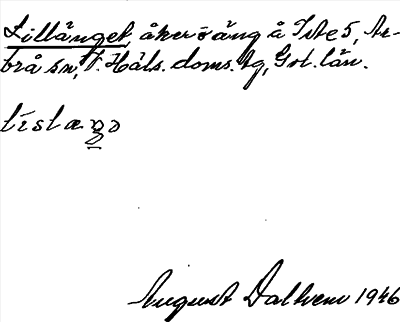 Lillänget, åker o äng å Iste 5, Ar-
brå sn, V. Häls. doms. tg, Gvl. län.
August Dalhem 1946